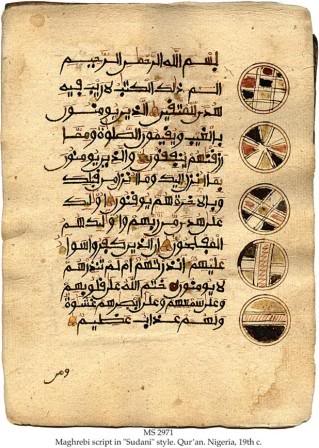 بسم الله الرحمن الرحيم
الم ذلك الكتب لا ريب فيه
هدى للمتقين الذين يومنون
بالغيب ويقيمون الصلوة ومما
رزقنهم ينفقون والذين يومنون
بما انزل اليك وما انزل من قبلك
وبالاخرة هم يوقنون اوليك
على هدى من ربهم واوليك هم
المفلحون ان الذين كفروا سوا
عليهم انذرتهم ام لم تنذرهم
لا يومنون ختم الله على قلوبهم
وعلى سمعهم وعلى ابصرهم غشوة
ولهم عذاب عظيم
ومن
MS 2971
Maghrebi script in "Sudani" style. Qur'an. Nigeria, 19th c.